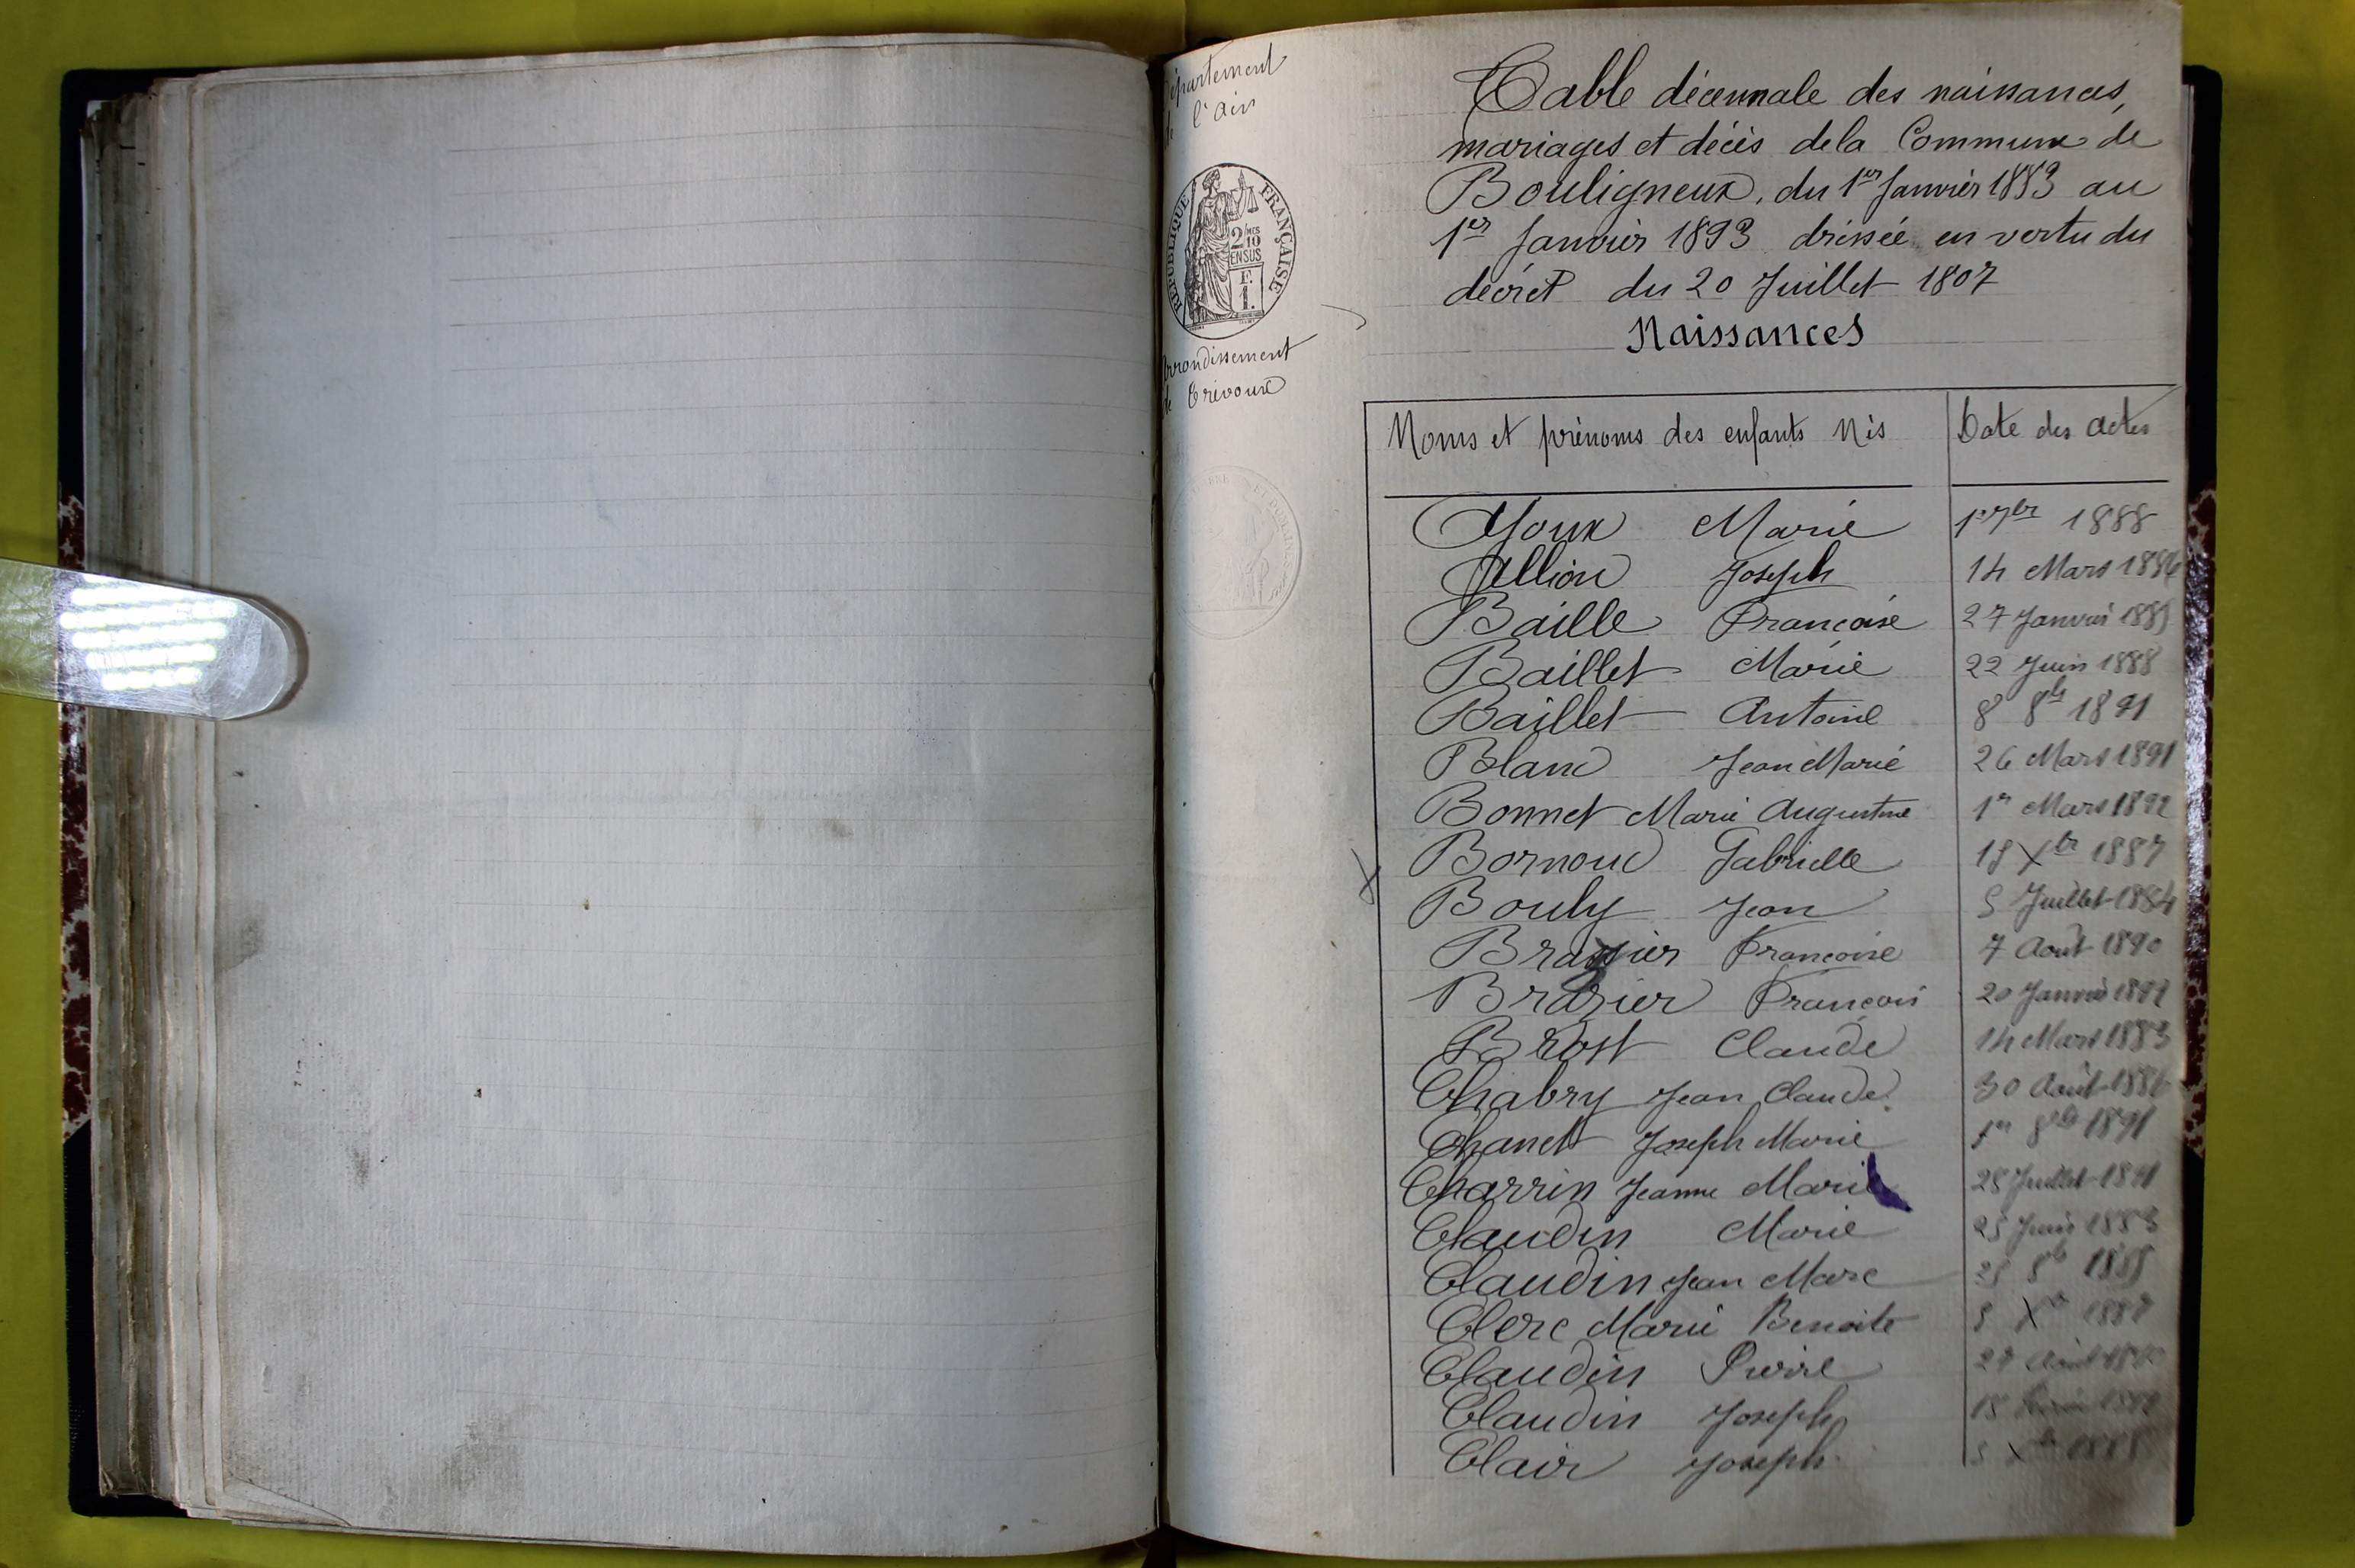 Département
de l'Ain
RÉPUBLIQUE FRANÇAISE
2/10MES
EN SUS
F.
1.
Arrondissement
de Trévoux
Table décennale des naissances,
mariages et décès de la Commune de
Bouligneux, du 1er Janvier 1883 au
1er Janvier 1893 dressée en vertu du
décret du 20 Juillet 1807
Naissances
Noms et prénoms des enfants Nés Date des actes
Ajoux Marie 1er 7bre 1888
Allion Joseph 14 Mars 1886
Baille Françoise 27 Janvier 1885
Baillet Marie 22 Juin 1888
Baillet Antoine 8 8bre 1891
Blanc Jean Marie 26 Mars 1891
Bonnet Marie Augustine 1er Mars 1892
Bornouc Gabrielle 18 Xbre 1887
Bouly Jean 5 Juillet 1884
Brazier Françoise 7 Août 1890
Brazier François 20 Janvier 1892
Brost Claude 14 Mars 1883
Chabry Jean Claude 30 Août 1886
Chanet Joseph Marie 1er 8bre 1891
Charrin Jeanne Marie 28 Juillet 1891
Claudin Marie 25 Juin 1883
Claudin Jean Marc 8bre 1885
Clerc Marie Benoite Xbre 1887
Claudin Pierre 27 Août
Claudin Joseph 18
Clair Joseph Xbre 1885